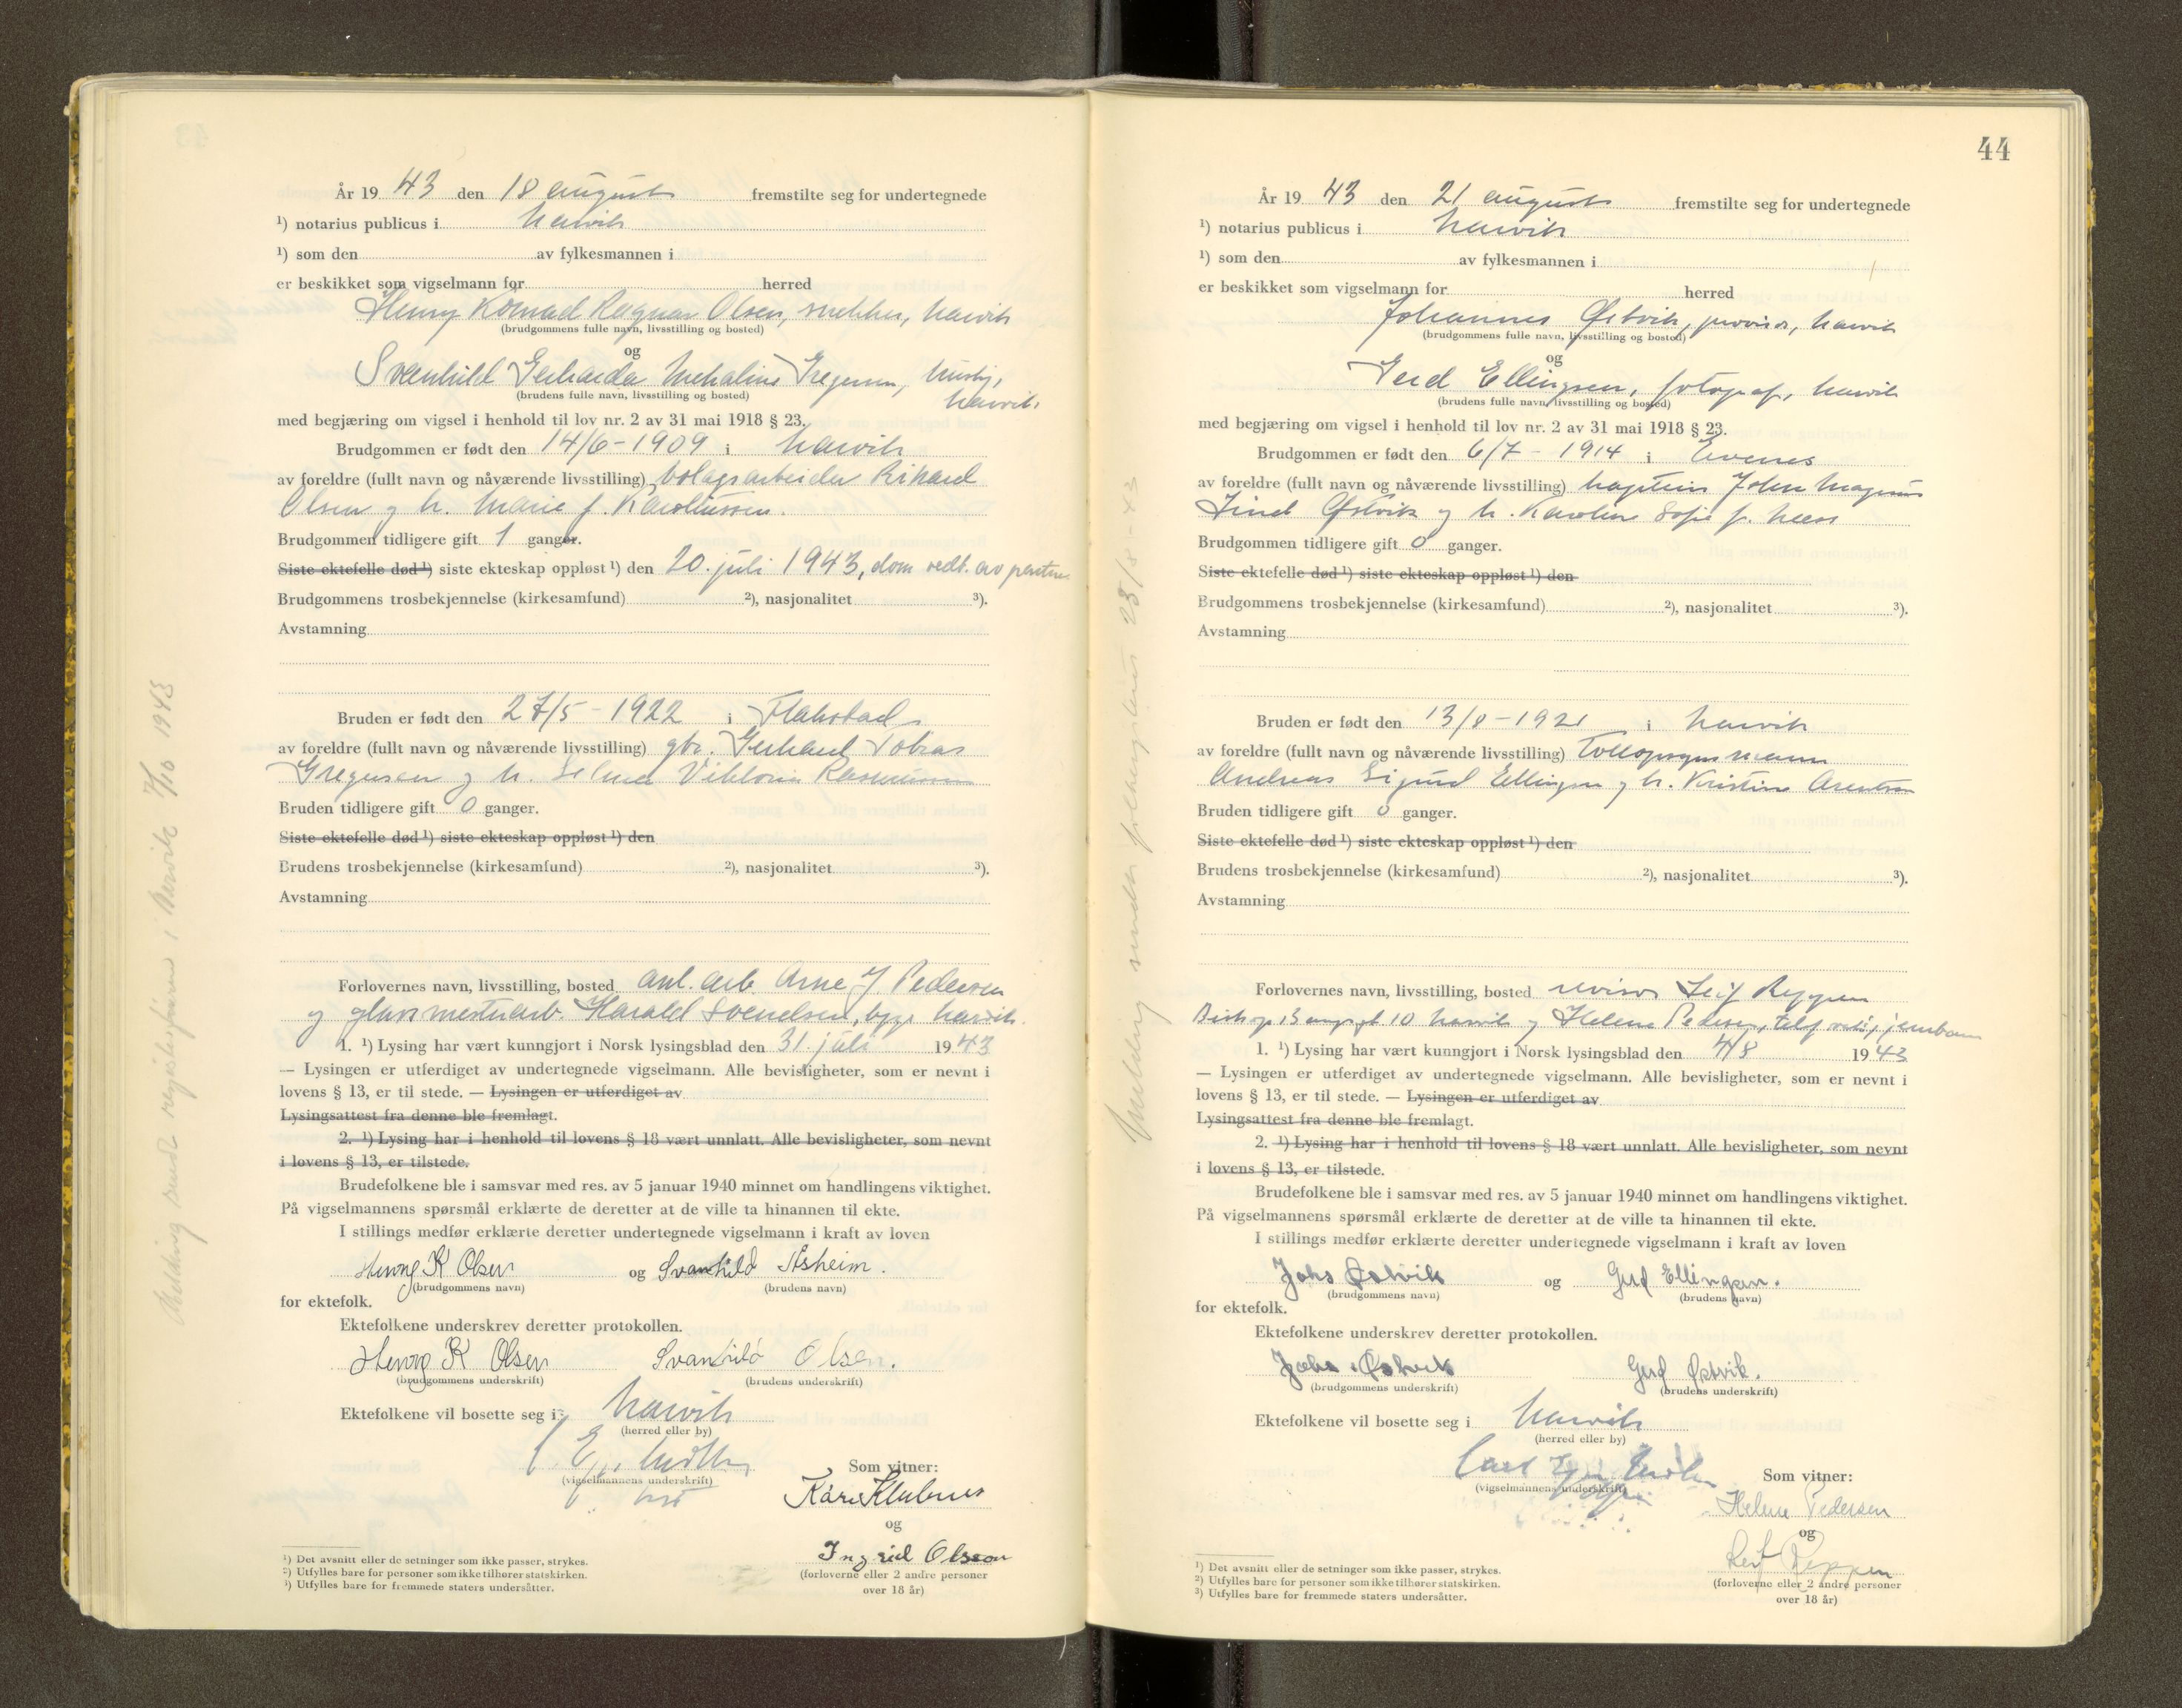 År 19 43 den 18 august fremstilte seg for undertegnede
¹) notarius publicus i Narvik
¹) som den av fylkesmannen i
er beskikket som vigselmann for herred
Henry Konrad Ragnar Olsen, snekker, Narvik
(brudgommens fulle navn, livsstilling og bosted)
og
Svanhild Gerharda Mekaline Gregersen, husbj.,
Narvik.
(brudens fulle navn, livsstilling og bosted)
med begjæring om vigsel i henhold til lov nr. 2 av 31 mai 1918 § 23.
Brudgommen er født den 14/6-1909 i Narvik
av foreldre (fullt navn og nåværende livsstilling) bolagsarbeider Rikard
Olsen og h. Marie f. Karoliussen.
Brudgommen tidligere gift 1 ganger.
Siste ektefelle død ¹) siste ekteskap oppløst ¹) den 20. juli 1943, dom vedt. av partene
Brudgommens trosbekjennelse (kirkesamfund) ²), nasjonalitet ³).
Avstamning
Bruden er født den 27/5-1922 i Flakstad
av foreldre (fullt navn og nåværende livsstilling) gbr. Gerhard Tobias
Gregersen og h. Selma Viktoria Rasmussen
Bruden tidligere gift 0 ganger.
Siste ektefelle død ¹) siste ekteskap oppløst ¹) den
Brudens trosbekjennelse (kirkesamfund) ²), nasjonalitet ³).
Avstamning
Forlovernes navn, livsstilling, bosted anl. arb. Arne J Pedersen
og glassmesterarb. Harald Svendsen, begge Narvik.
1. ¹) Lysing har vært kunngjort i Norsk lysingsblad den 31. juli 1943
— Lysingen er utferdiget av undertegnede vigselmann. Alle bevisligheter, som er nevnt i
lovens § 13, er til stede. — Lysingen er utferdiget av
Lysingsattest fra denne ble fremlagt.
2. ¹) Lysing har i henhold til lovens § 18 vært unnlatt. Alle bevisligheter, som nevnt
i lovens § 13, er tilstede.
Brudefolkene ble i samsvar med res. av 5 januar 1940 minnet om handlingens viktighet.
På vigselmannens spørsmål erklærte de deretter at de ville ta hinannen til ekte.
I stillings medfør erklærte deretter undertegnede vigselmann i kraft av loven
Henry K Olsen og Svanhild Åsheim.
(brudgommens navn) (brudens navn)
for ektefolk.
Ektefolkene underskrev deretter protokollen.
Henry K Olsen Svanhild Olsen.
(brudgommens underskrift) (brudens underskrift)
Ektefolkene vil bosette seg i Narvik
(herred eller by)
(vigselmannens underskrift)
Som vitner:
Kåre Klubnes
og
Ingrid Olsson
(forloverne eller 2 andre personer
over 18 år)
¹) Det avsnitt eller de setninger som ikke passer, strykes.
²) Utfylles bare for personer som ikke tilhører statskirken.
³) Utfylles bare for fremmede staters undersåtter.
Melding sendt registerføreren i Narvik 7/10 1943
44
År 19 43 den 21 august fremstilte seg for undertegnede
¹) notarius publicus i Narvik
¹) som den av fylkesmannen i
er beskikket som vigselmann for herred
Johannes Østvik, provisor, Narvik
(brudgommens fulle navn, livsstilling og bosted)
og
Gerd Ellingsen, fotograf, Narvik
(brudens fulle navn, livsstilling og bosted)
med begjæring om vigsel i henhold til lov nr. 2 av 31 mai 1918 § 23.
Brudgommen er født den 6/7 - 1914 i Evenes
av foreldre (fullt navn og nåværende livsstilling) kaptein John Magnus
Østvik og h. Karoline Sofie f. Næss
Brudgommen tidligere gift 0 ganger.
Siste ektefelle død ¹) siste ekteskap oppløst ¹) den
Brudgommens trosbekjennelse (kirkesamfund) ²), nasjonalitet ³).
Avstamning
Bruden er født den 13/8-1921 i Narvik
av foreldre (fullt navn og nåværende livsstilling) tolloppsynsmann
Andreas Sigurd Ellingsen og h. Kristine Arentsen
Bruden tidligere gift 0 ganger.
Siste ektefelle død ¹) siste ekteskap oppløst ¹) den
Brudens trosbekjennelse (kirkesamfund) ²), nasjonalitet ³).
Avstamning
Forlovernes navn, livsstilling, bosted revisor Leif Reppen
10 Narvik og Helene Pedersen,
1. ¹) Lysing har vært kunngjort i Norsk lysingsblad den 4/8 1943
— Lysingen er utferdiget av undertegnede vigselmann. Alle bevisligheter, som er nevnt i
lovens § 13, er til stede. — Lysingen er utferdiget av
Lysingsattest fra denne ble fremlagt.
2. ¹) Lysing har i henhold til lovens § 18 vært unnlatt. Alle bevisligheter, som nevnt
i lovens § 13, er tilstede.
Brudefolkene ble i samsvar med res. av 5 januar 1940 minnet om handlingens viktighet.
På vigselmannens spørsmål erklærte de deretter at de ville ta hinannen til ekte.
I stillings medfør erklærte deretter undertegnede vigselmann i kraft av loven
Johs Østvik og Gerd Ellingsen.
(brudgommens navn) (brudens navn)
for ektefolk.
Ektefolkene underskrev deretter protokollen.
Johs Østvik Gerd Østvik.
(brudgommens underskrift) (brudens underskrift)
Ektefolkene vil bosette seg i Narvik
(herred eller by)
(vigselmannens underskrift)
Som vitner:
Helene Pedersen
og
Leif Reppen
(forloverne eller 2 andre personer
over 18 år)
¹) Det avsnitt eller de setninger som ikke passer, strykes.
²) Utfylles bare for personer som ikke tilhører statskirken.
³) Utfylles bare for fremmede staters undersåtter.
Melding sendt folkeregisteret 28/8-43